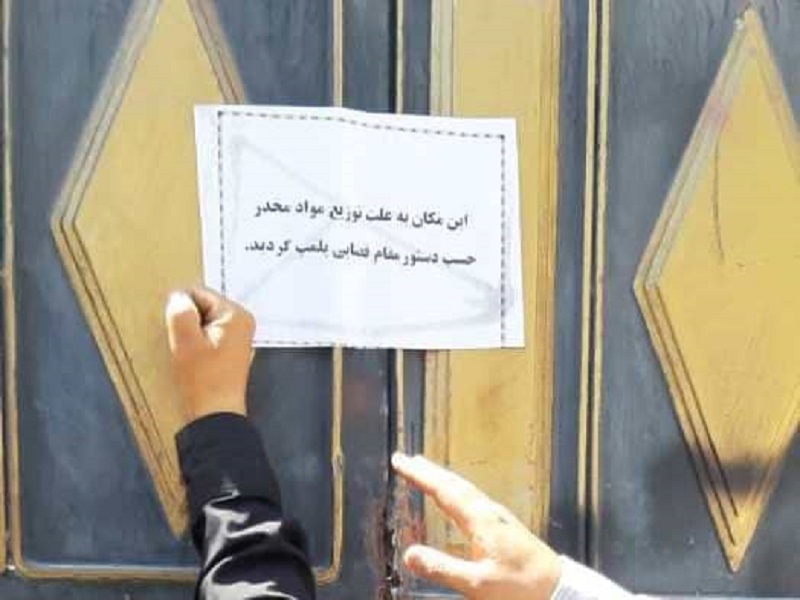 این مکان به علت توزیع مواد مخدر
حسب دستور مقام قضایی پلمب گردید.